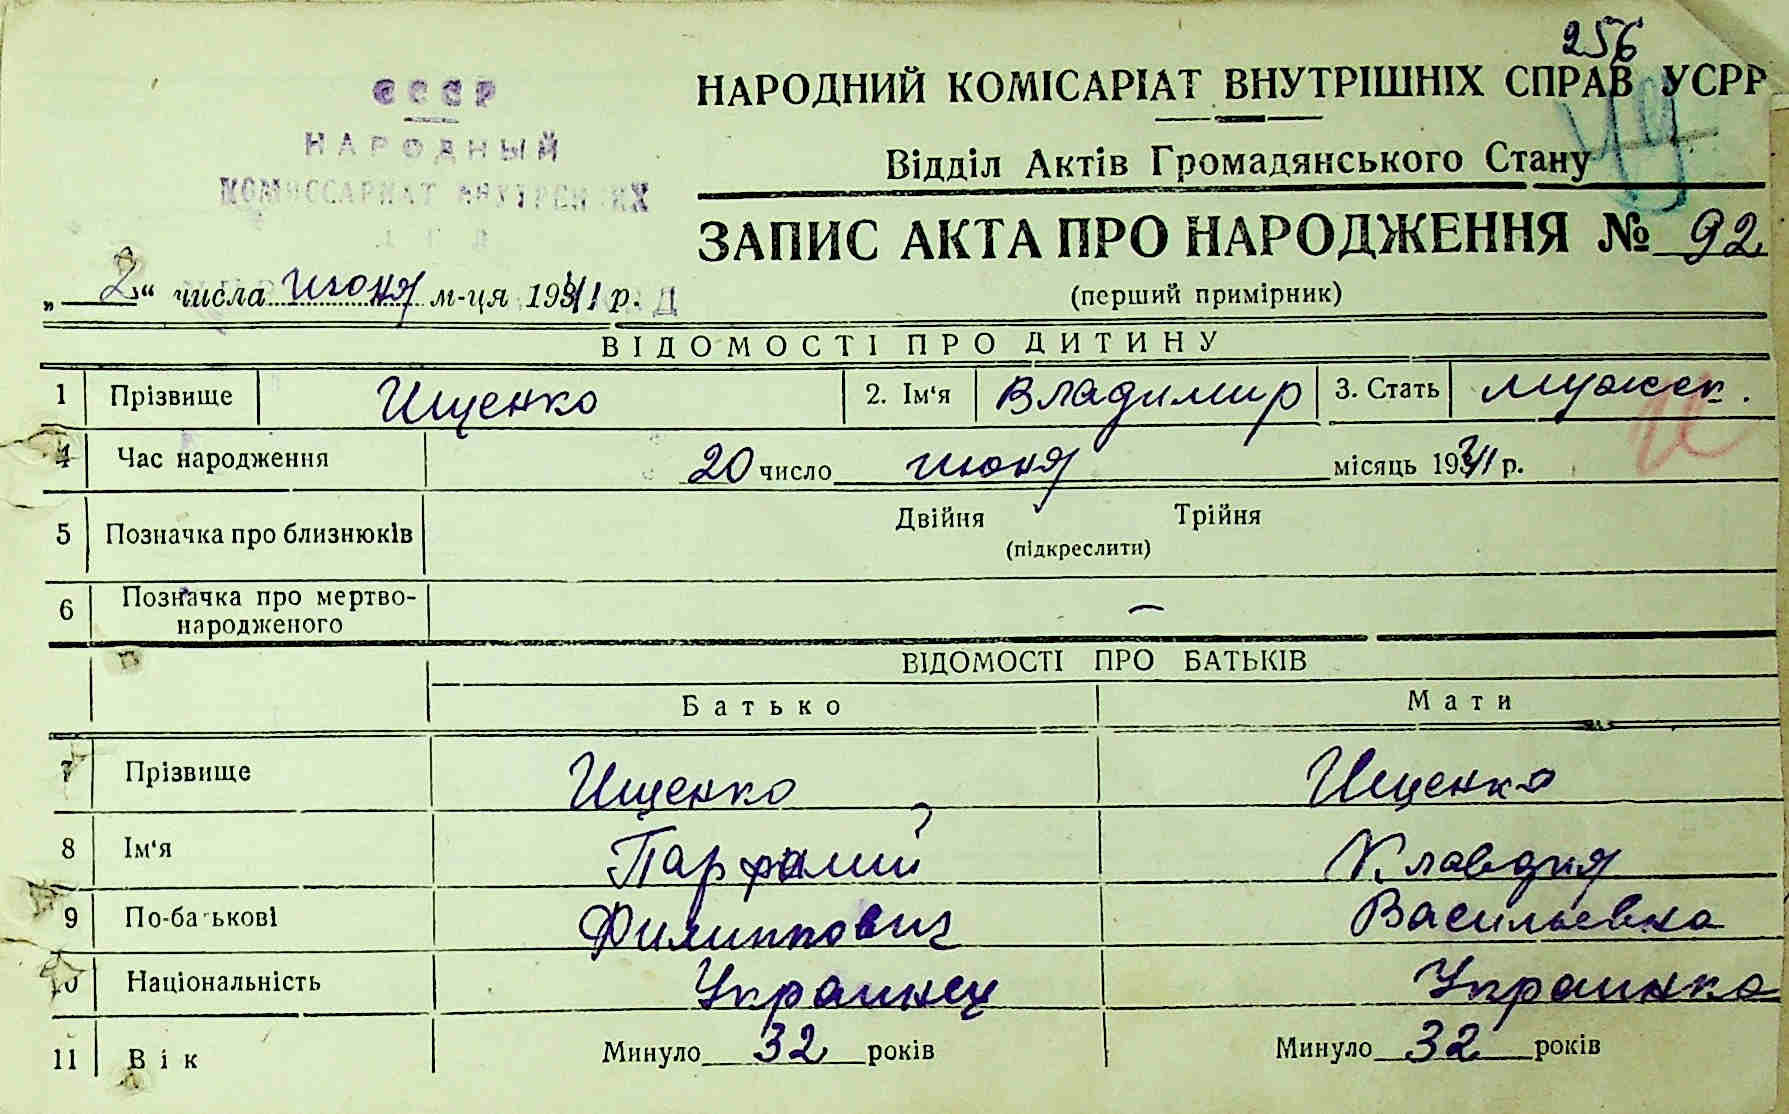 256
СССР
НАРОДНЫЙ
КОМИССАРИАТ ВНУТРЕННИХ
НАРОДНИЙ КОМІСАРІАТ ВНУТРІШНІХ СПРАВ УСРР
Відділ Актів Громадянського Стану
ЗАПИС АКТА ПРО НАРОДЖЕННЯ № 92
(перший примірник)
„ 2 “ числа июня м-ця 1941 р.
ВІДОМОСТІ ПРО ДИТИНУ
1 Прізвище Ищенко 2. Ім‘я Владимир 3. Стать мужск.
4 Час народження 20 число июня місяць 1941 р.
5 Позначка про близнюків Двійня Трійня
(підкреслити)
6 Позначка про мертво-
народженого —
ВІДОМОСТІ ПРО БАТЬКІВ
Батько Мати
7 Прізвище Ищенко Ищенко
8 Ім‘я Клавдия
9 По-батькові Филиппович Васильевна
10 Національність Украинец Украинка
11 Вік Минуло 32 років Минуло 32 років